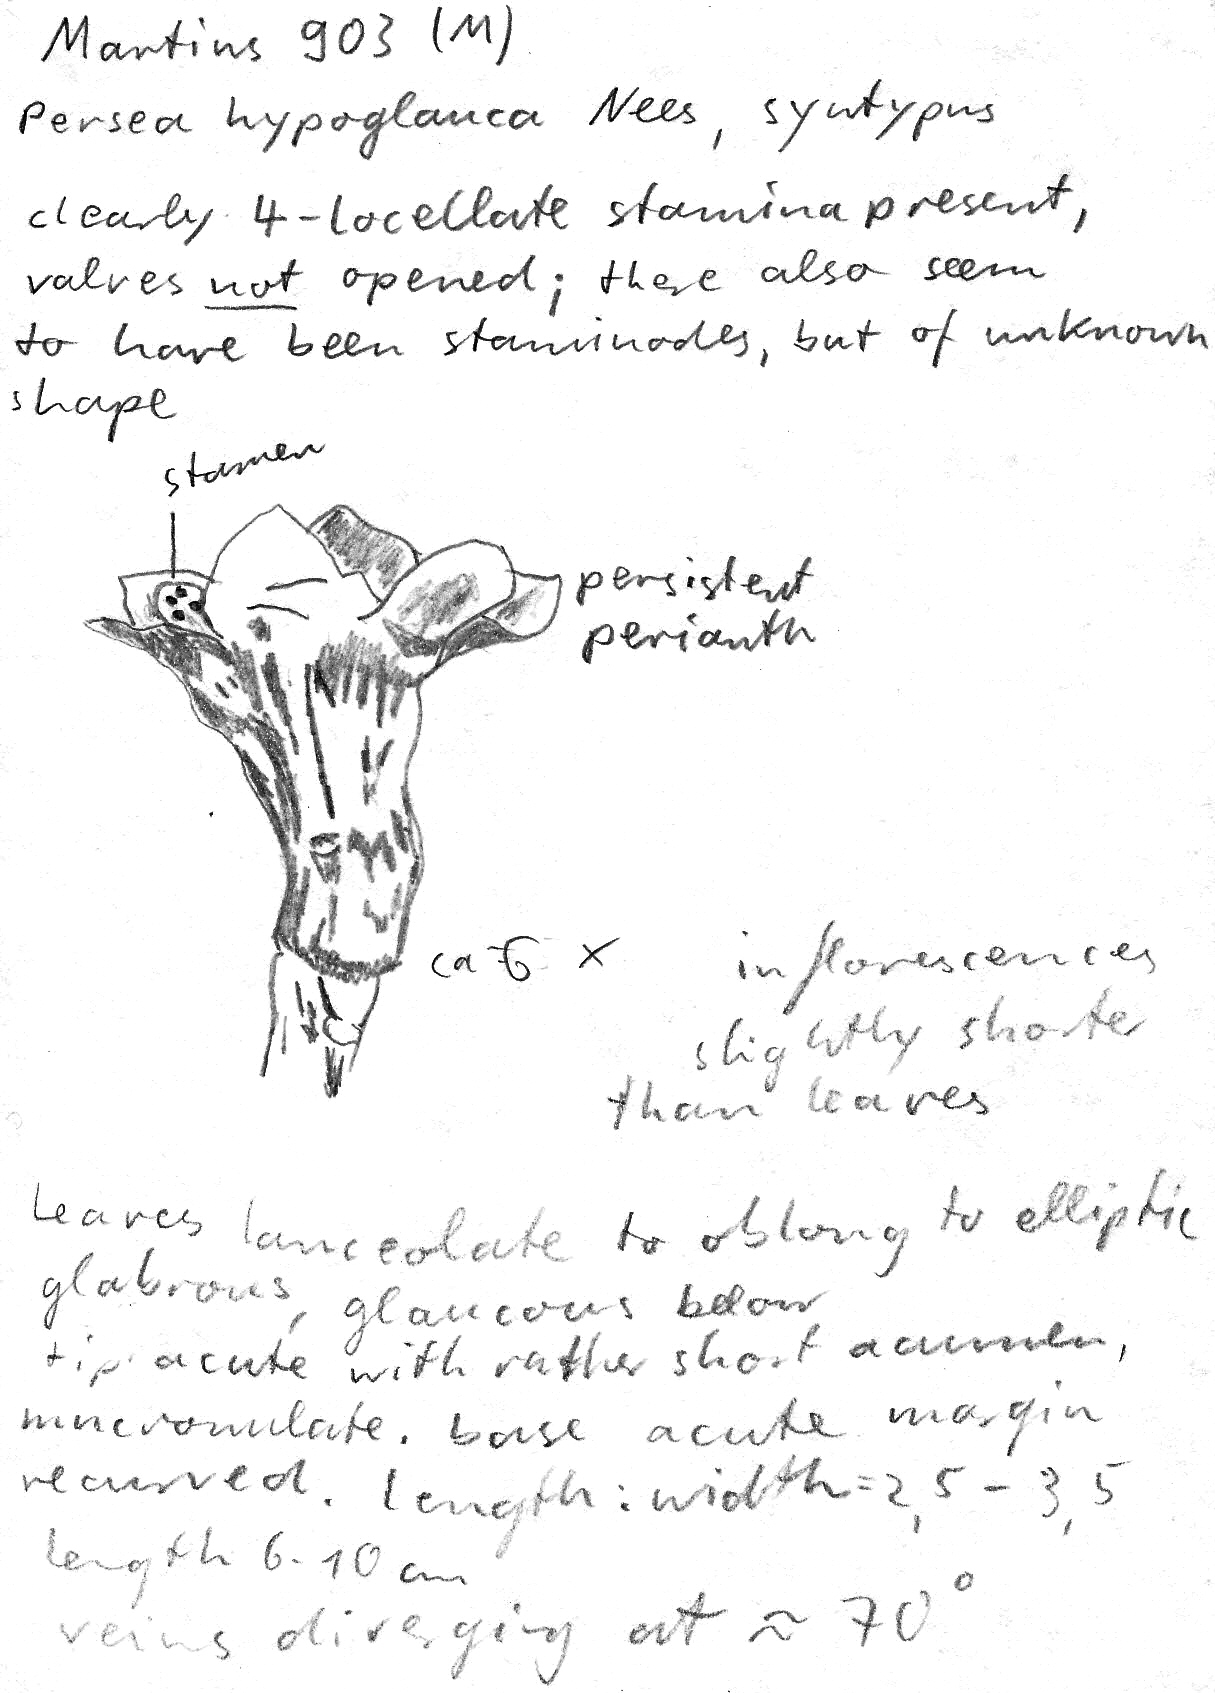 Martins 903 (M)
Persea hypoglauca Nees, syntypus
clearly 4-locellate stamina present,
valves not opened; there also seem
to have been staminodes, but of unknown
shape
stamen
persistent
perianth
ca 6 x
inflorescences
slightly shorter
than leaves
Leaves lanceolate to oblong to elliptic
glabrous, glaucous below
tip acute with rather short acumen,
mucronulate. base acute margin
recurved. length : width = 2,5 - 3,5
length 6-10 cm
veins diverging at ≈ 70°